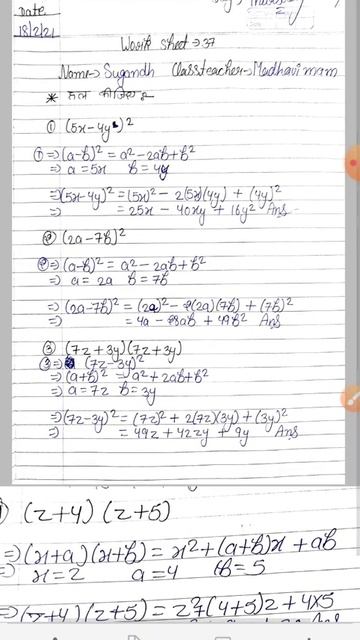 Date
18/2/21
Work sheet → 37
Name → Sugandh Classteacher → Madhavi mam
* हल कीजिए :
① (5x-4y)²
①⇒ (a-b)² = a² - 2ab + b²
⇒ a = 5x b = 4y
⇒ (5x-4y)² = (5x)² - 2(5x)(4y) + (4y)²
⇒ = 25x - 40xy + 16y² Ans
② (2a-7b)²
②⇒ (a-b)² = a² - 2ab + b²
⇒ a = 2a b = 7b
⇒ (2a-7b)² = (2a)² - 2(2a)(7b) + (7b)²
⇒ = 4a - 28ab + 49b² Ans
③ (7z+3y)(7z+3y)
③⇒ (7z-3y)²
⇒ (a+b)² = a² + 2ab + b²
⇒ a = 7z b = 3y
⇒ (7z-3y)² = (7z)² + 2(7z)(3y) + (3y)²
⇒ = 49z + 42zy + 9y Ans
(z+4) (z+5)
⇒ (x+a)(x+b) = x² + (a+b)x + ab
⇒ x = z a = 4 b = 5
⇒ (z+4)(z+5) = z² + (4+5)z + 4×5